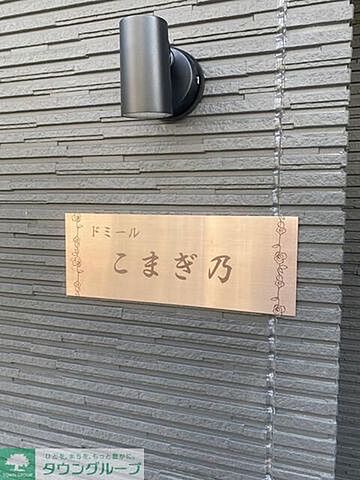 ドミール
こまぎ乃
ひとを、まちを、もっと豊かに。
タウングループ
TOWN GROUP